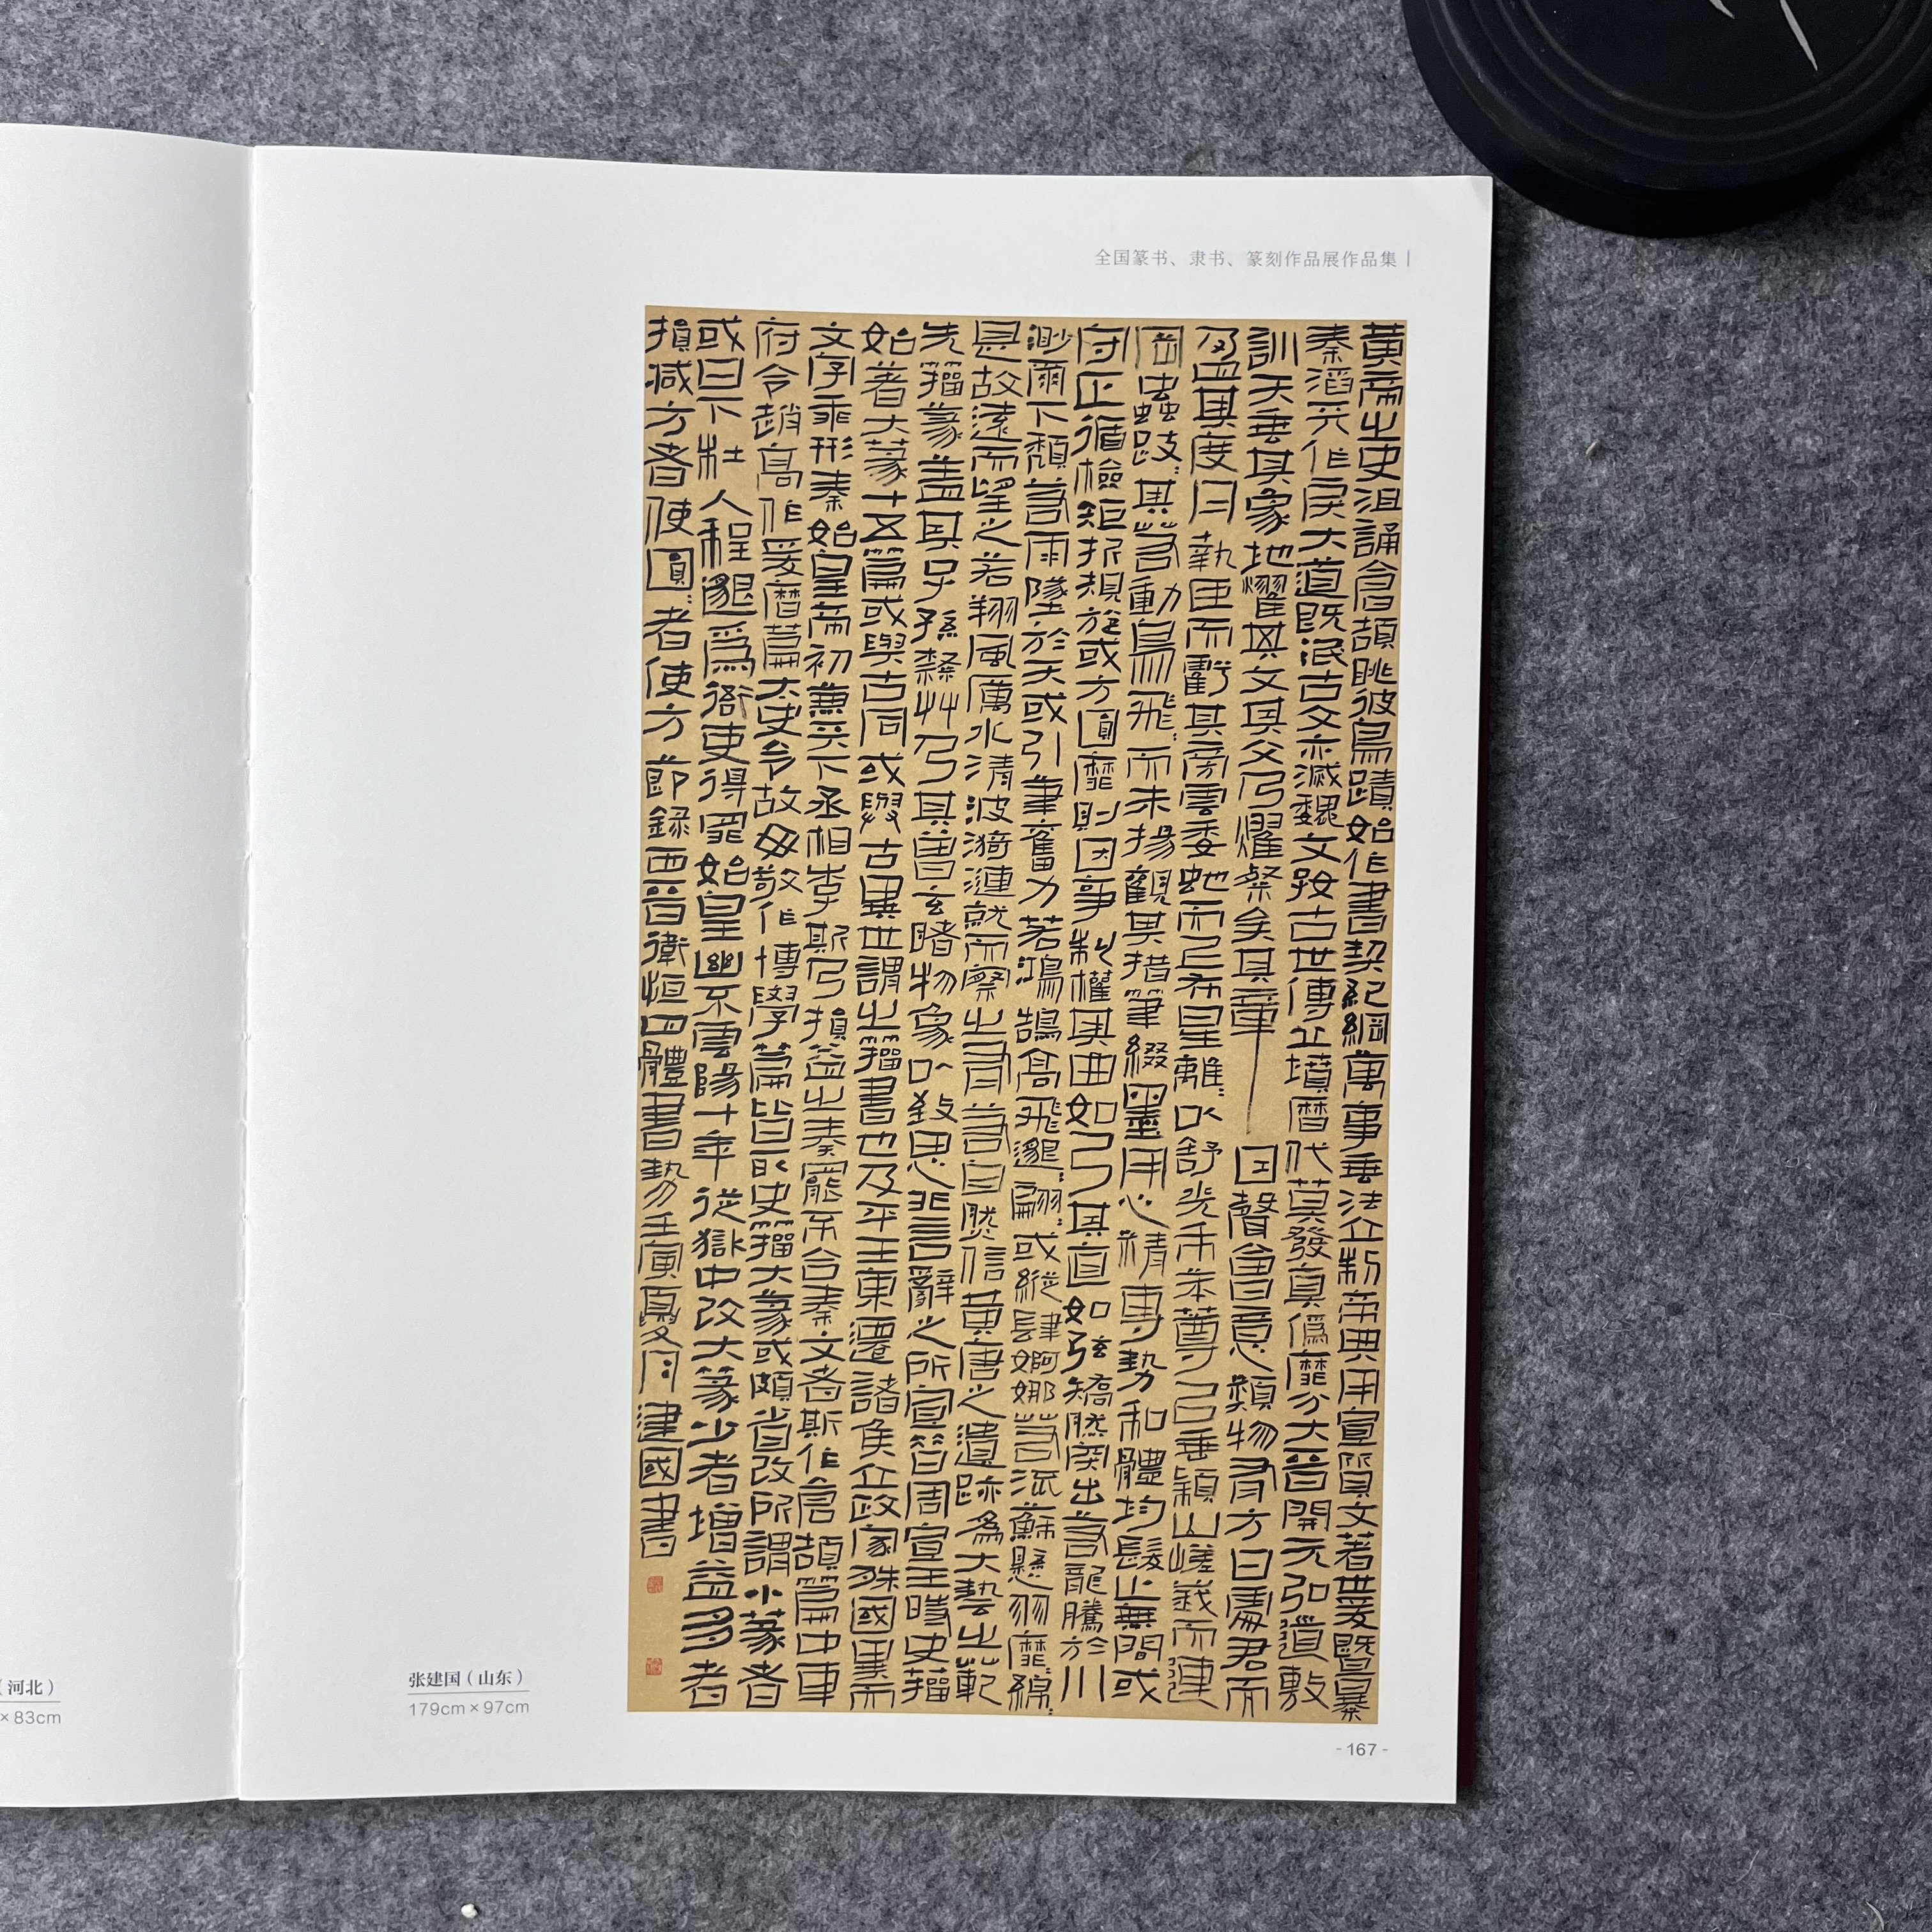 全国篆书、隶书、篆刻作品展作品集
黃帝之史沮誦倉頡眺彼鳥蹟始作書契紀綱萬事垂法立制帝典用宣質文著世爰暨暴
秦滔天作戾大道既泯古文亦滅魏文好古世傳丘墳歷代莫發真偽靡分大晉開元弘道敷
訓天垂其象地耀其文其文乃耀粲矣其章因聲會意類物有方日處君而
盈其度月執臣而虧其旁雲委蛇而上布星離:以舒光禾苯䔿以垂穎山嵯峨而連
岡蟲跂:其若動鳥飛:而未揚觀其措筆綴墨用心精專勢和體均發止無間或
守正循檢矩折規旋或方圓靡則因事制權其曲如弓其直如弦矯然突出若龍騰於川
渺爾下頹若雨墜於天或引筆奮力若鴻鵠高飛邈:翩:或縱肆婀娜若流蘇懸羽靡:綿:
是故遠而望之若翔風厲水清波漪漣就而察之有若自然信黃唐之遺跡為六藝之範
先籀篆蓋其子孫隸艸乃其曾玄睹物象以致思非言辭之所宣昔周宣王時史籀
始著大篆十五篇或與古同或與古異世謂之籀書也及平王東遷諸侯立政家殊國異而
文字乖形秦始皇帝初兼天下丞相李斯乃損益之奏罷不合秦文者斯作倉頡篇中車
府令趙高作爰歷篇太史令胡毋敬作博學篇皆取史籀大篆或頗省改所謂小篆者
或曰下杜人程邈為衙吏得罪始皇幽系雲陽十年從獄中改大篆少者增益多者
損減方者使圓:者使方節錄西晉衛恒四體書勢壬寅夏月建國書
张建国（山东）
179cm×97cm
（河北）
×83cm
-167-